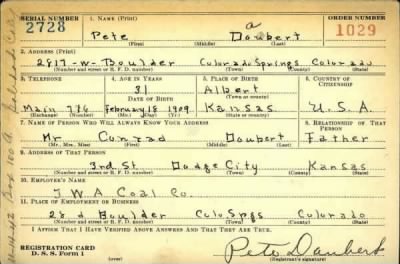 SERIAL NUMBER 1. NAME (Print) ORDER NUMBER
2728 Pete a Daubert 1029
(First) (Middle) (Last)
2. ADDRESS (Print)
2917-W-Boulder Colorado Springs Colorado
(Number and street or R. F. D. number) (Town) (County) (State)
3. TELEPHONE 4. AGE IN YEARS 5. PLACE OF BIRTH 6. COUNTRY OF CITIZENSHIP
31 Albert
DATE OF BIRTH (Town or county)
Main 776 February 18 1909 Kansas U.S.A.
(Exchange) (Number) (Mo.) (Day) (Yr.) (State or country)
7. NAME OF PERSON WHO WILL ALWAYS KNOW YOUR ADDRESS 8. RELATIONSHIP OF THAT PERSON
Mr Conrad Daubert Father
(Mr., Mrs., Miss) (First) (Middle) (Last)
9. ADDRESS OF THAT PERSON
3rd. St. Dodge City Kansas
(Number and street or R. F. D. number) (Town) (County) (State)
10. EMPLOYER'S NAME
Coal Co.
11. PLACE OF EMPLOYMENT OR BUSINESS
Boulder Colo Spgs Colorado
(Number and street or R. F. D. number) (Town) (County) (State)
I AFFIRM THAT I HAVE VERIFIED ABOVE ANSWERS AND THAT THEY ARE TRUE.
REGISTRATION CARD
D. S. S. Form 1 Pete Daubert
(Registrant's signature)